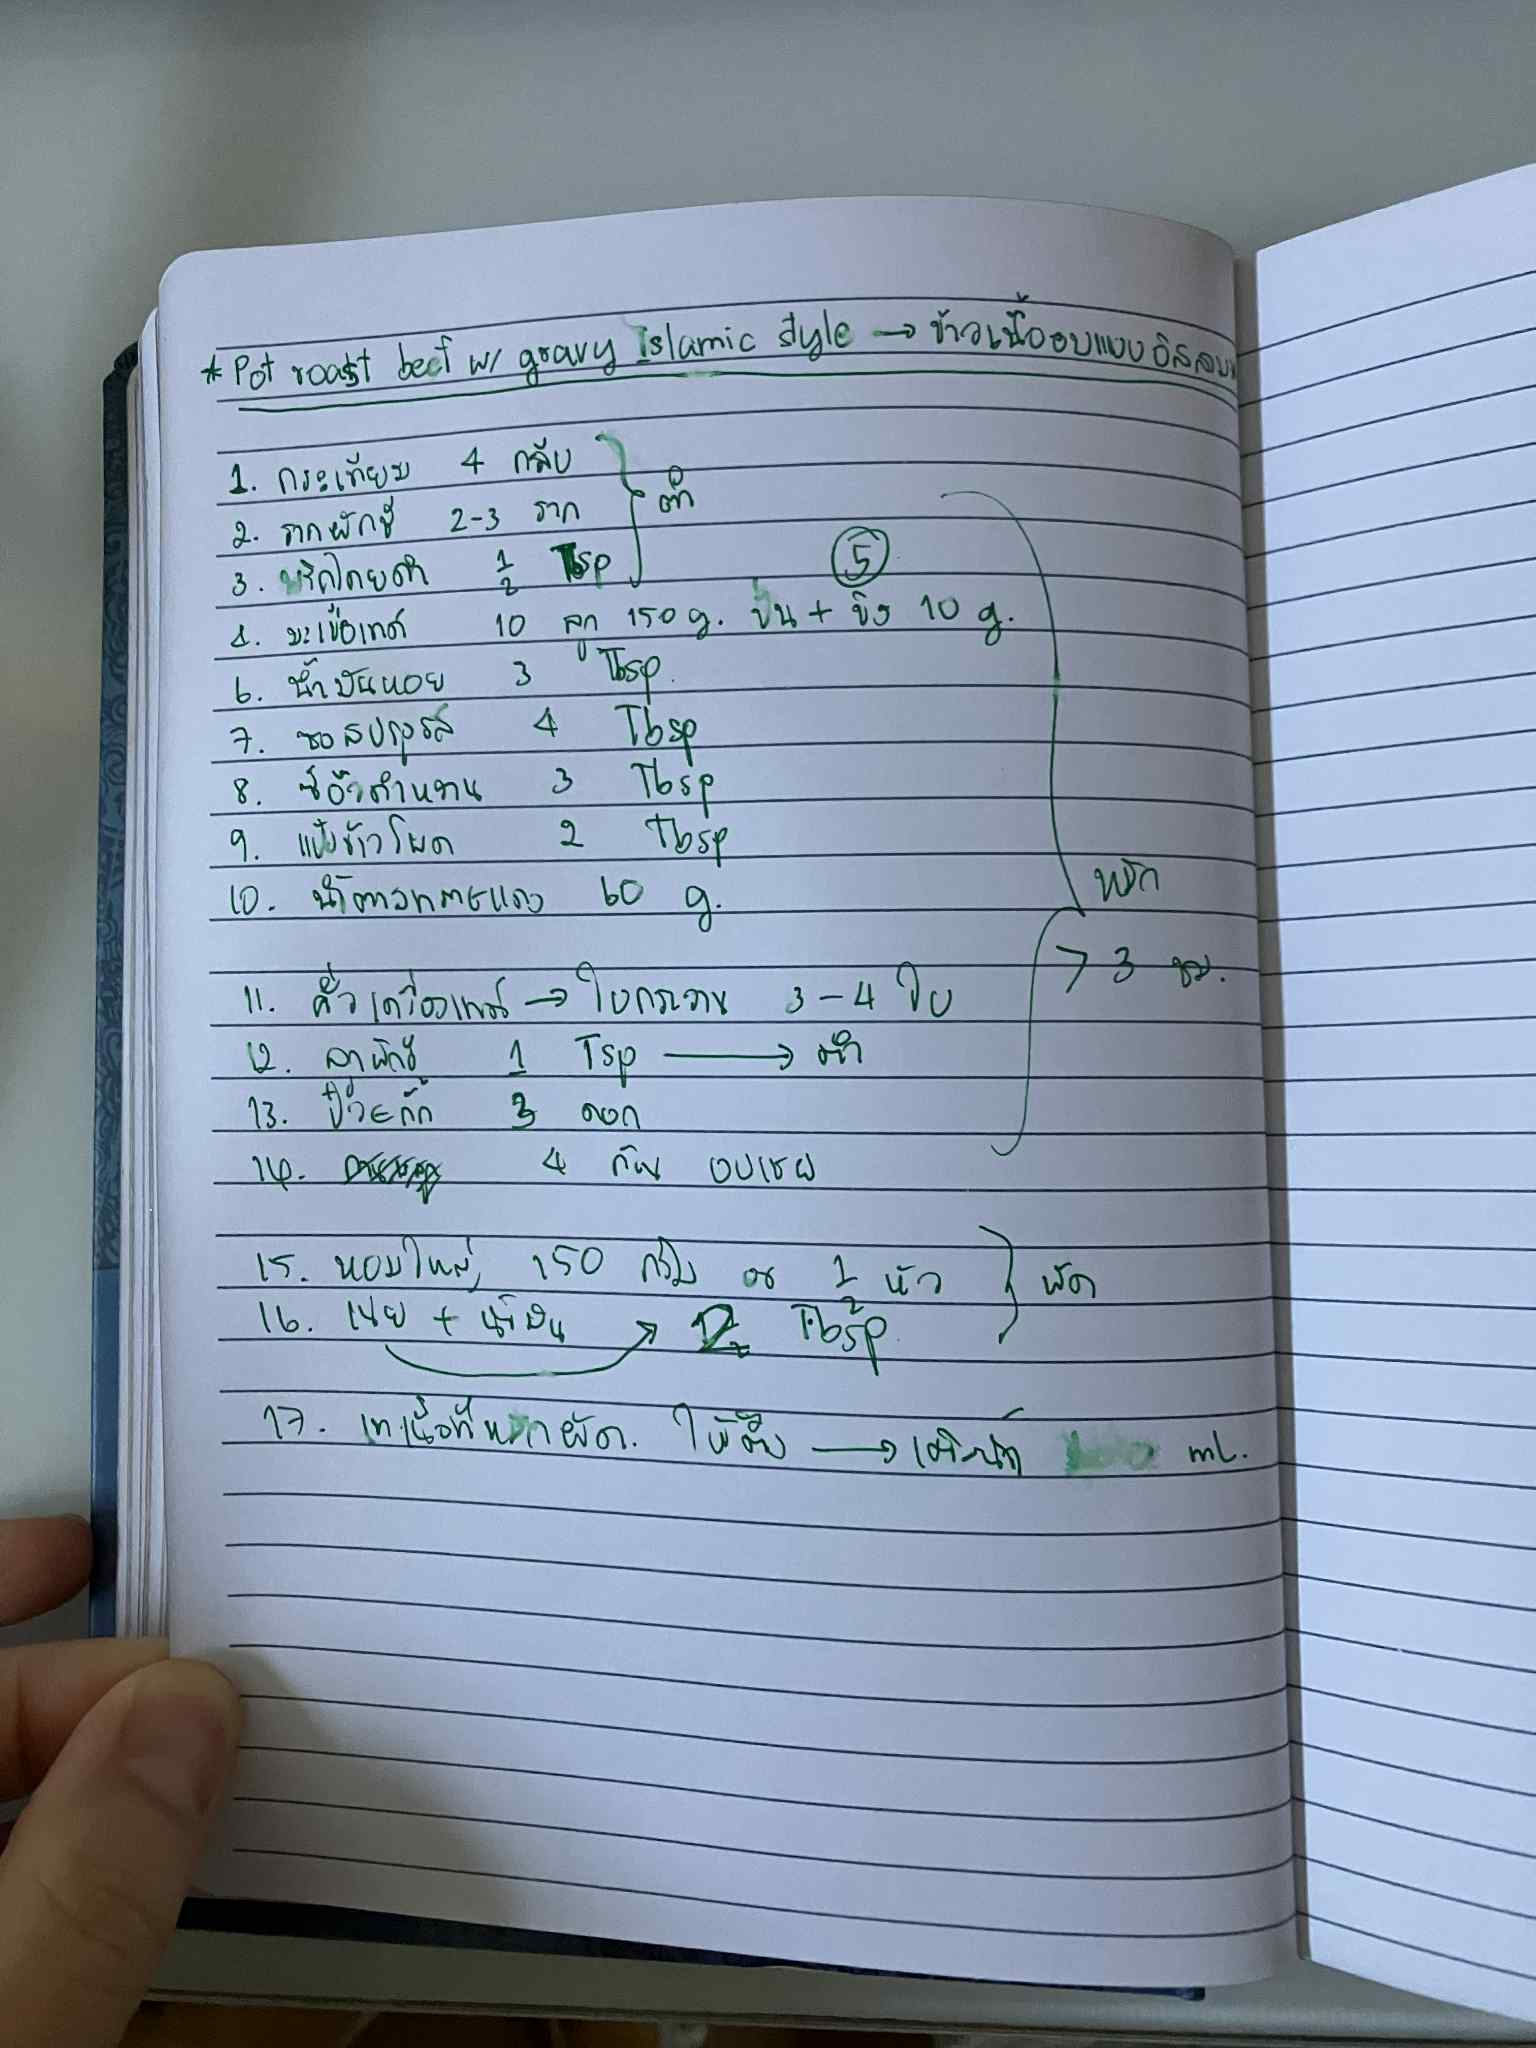 * Pot roast beef w/ gravy Islamic style → ข้าวเนื้ออบแบบอิสลาม
1. กระเทียม 4 กลีบ
2. รากผักชี 2-3 ราก
ตำ
3. พริกไทยดำ 1/2 Tsp
5
4. มะเขือเทศ 10 ลูก 150 g. ปั่น + ขิง 10 g.
6. น้ำมันหอย 3 Tbsp.
7. ซอสปรุงรส 4 Tbsp
8. ซีอิ๊วดำหวาน 3 Tbsp
9. แป้งข้าวโพด 2 Tbsp
10. น้ำตาลทรายแดง 60 g.
หมัก
> 3 ชม.
11. คั่วเครื่องเทศ → ใบกระวาน 3-4 ใบ
12. ลูกผักชี 1 Tsp → ตำ
13. โป๊ยกั๊ก 3 ดอก
14. 4 อบเชย
15. หอมใหญ่ 150 กรัม or 1/2 หัว
ผัด
16. เนย + น้ำมัน → 2 Tbsp.
17. เทเนื้อที่หมักผัด. ให้ตึง → เติมน้ำ ml.